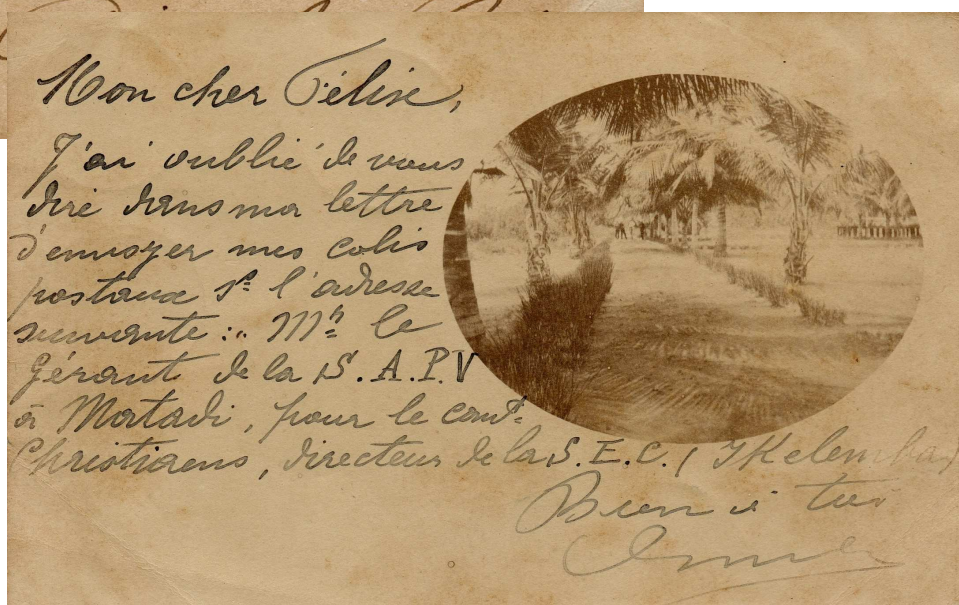 Mon cher Félix,
J'ai oublié de vous
dire dans ma lettre
d'envoyer mes colis
postaux sr l'adresse
suivante : Mr le
Gérant de la S.A.P.V
à Matadi, pour le comt.
Christiaens, directeur de la S.E.C. (Ikelemba)
Bien à toi